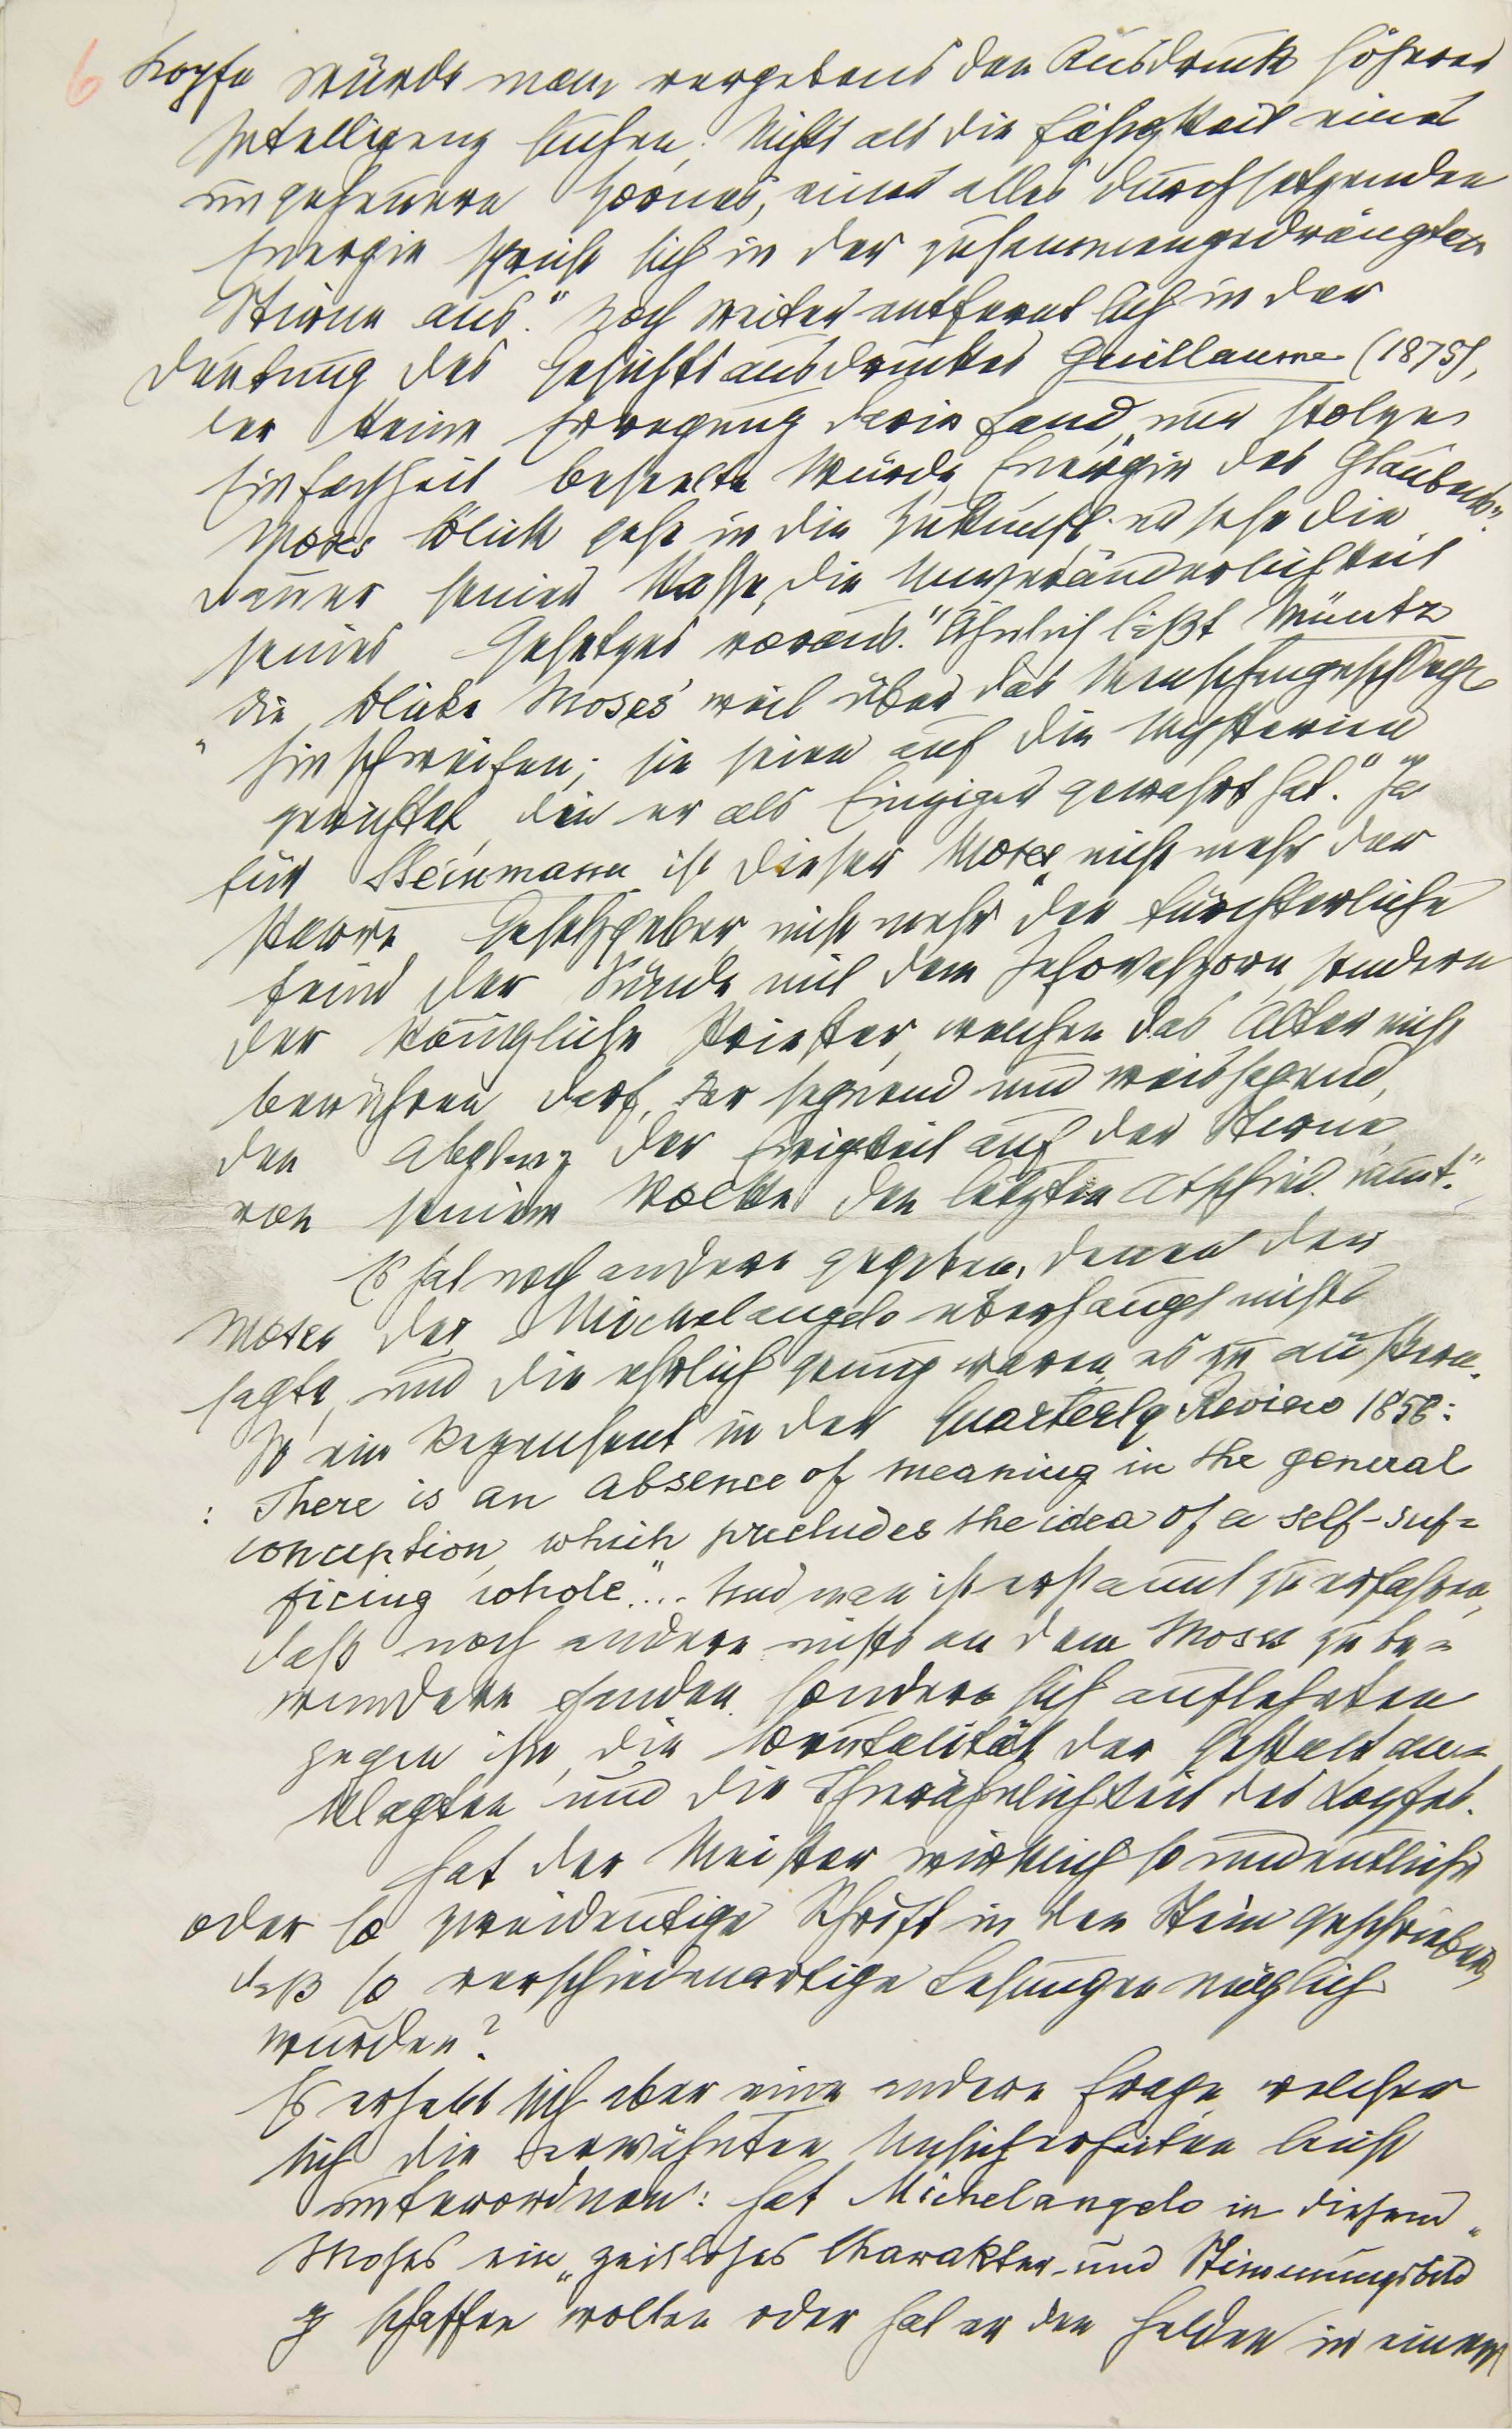 6 Kopfe würde man vergebens den Ausdruck höherer
Intelligenz suchen; Nichts als die Fähigkeit eines
ungeheuren Zornes, einer alles durchsetzenden
Energie spricht sich in der zusammengedrängten
Stirne aus." Noch weiter entfernt sich in der
Deutung des Gesichtsausdruckes Guillaume (1875),
der keine Erregung darin fand, nur stolze
Einfachheit, beseelte Würde, Energie des Glaubens".
Moses Blick gehe in die Zukunft, er sehe die
Dauer seiner Rasse, die Unveränderlichkeit
seines Gesetzes voraus." Ähnlich läßt Müntz
„die Blicke Moses' weit über das Menschengeschlecht
hinschweifen; sie seien auf die Mysterien
gerichtet, die er als Einziger gewahrt hat." Ja
für Steinmann ist dieser Moses „nicht mehr der
starre Gesetzgeber, nicht mehr der fürchterliche
Feind der Sünde mit dem Jehovahzorn, sondern
der königliche Priester, welchen das Alter nicht
berühren darf, der segnend und weissagend,
den Abglanz der Ewigkeit auf der Stirne,
von seinem Volke den letzten Abschied nimt."
Es hat noch andere gegeben, denen der
Moses des Michelangelo überhaupt nichts
sagte, und die ehrlich genug waren, es zu äußern.
So ein Rezensent in der Quarterly Review 1858:
: There is an absence of meaning in the general
conception, which precludes the idea of a self-suf=
ficing whole"... Und man ist erstaunt zu erfahren,
daß noch andere nichts an dem Moses zu be=
wundern fanden, sondern sich auflehnten
gegen ihn, die Brutalität der Gestalt an=
klagten und die Thierähnlichkeit des Kopfes.
Hat der Meister wirklich so undeutliche
oder so zweideutige Schrift in den Stein geschrieben,
daß so verschiedenartige Lesungen möglich
wurden?
Es erhebt sich aber eine andere Frage, welcher
sich die erwähnten Unsicherheiten leicht
unterordnen: Hat Michelangelo in diesem
Moses ein „zeitloses Charakter- und Stimmungsbild"
z schaffen wollen oder hat er den Helden in einem